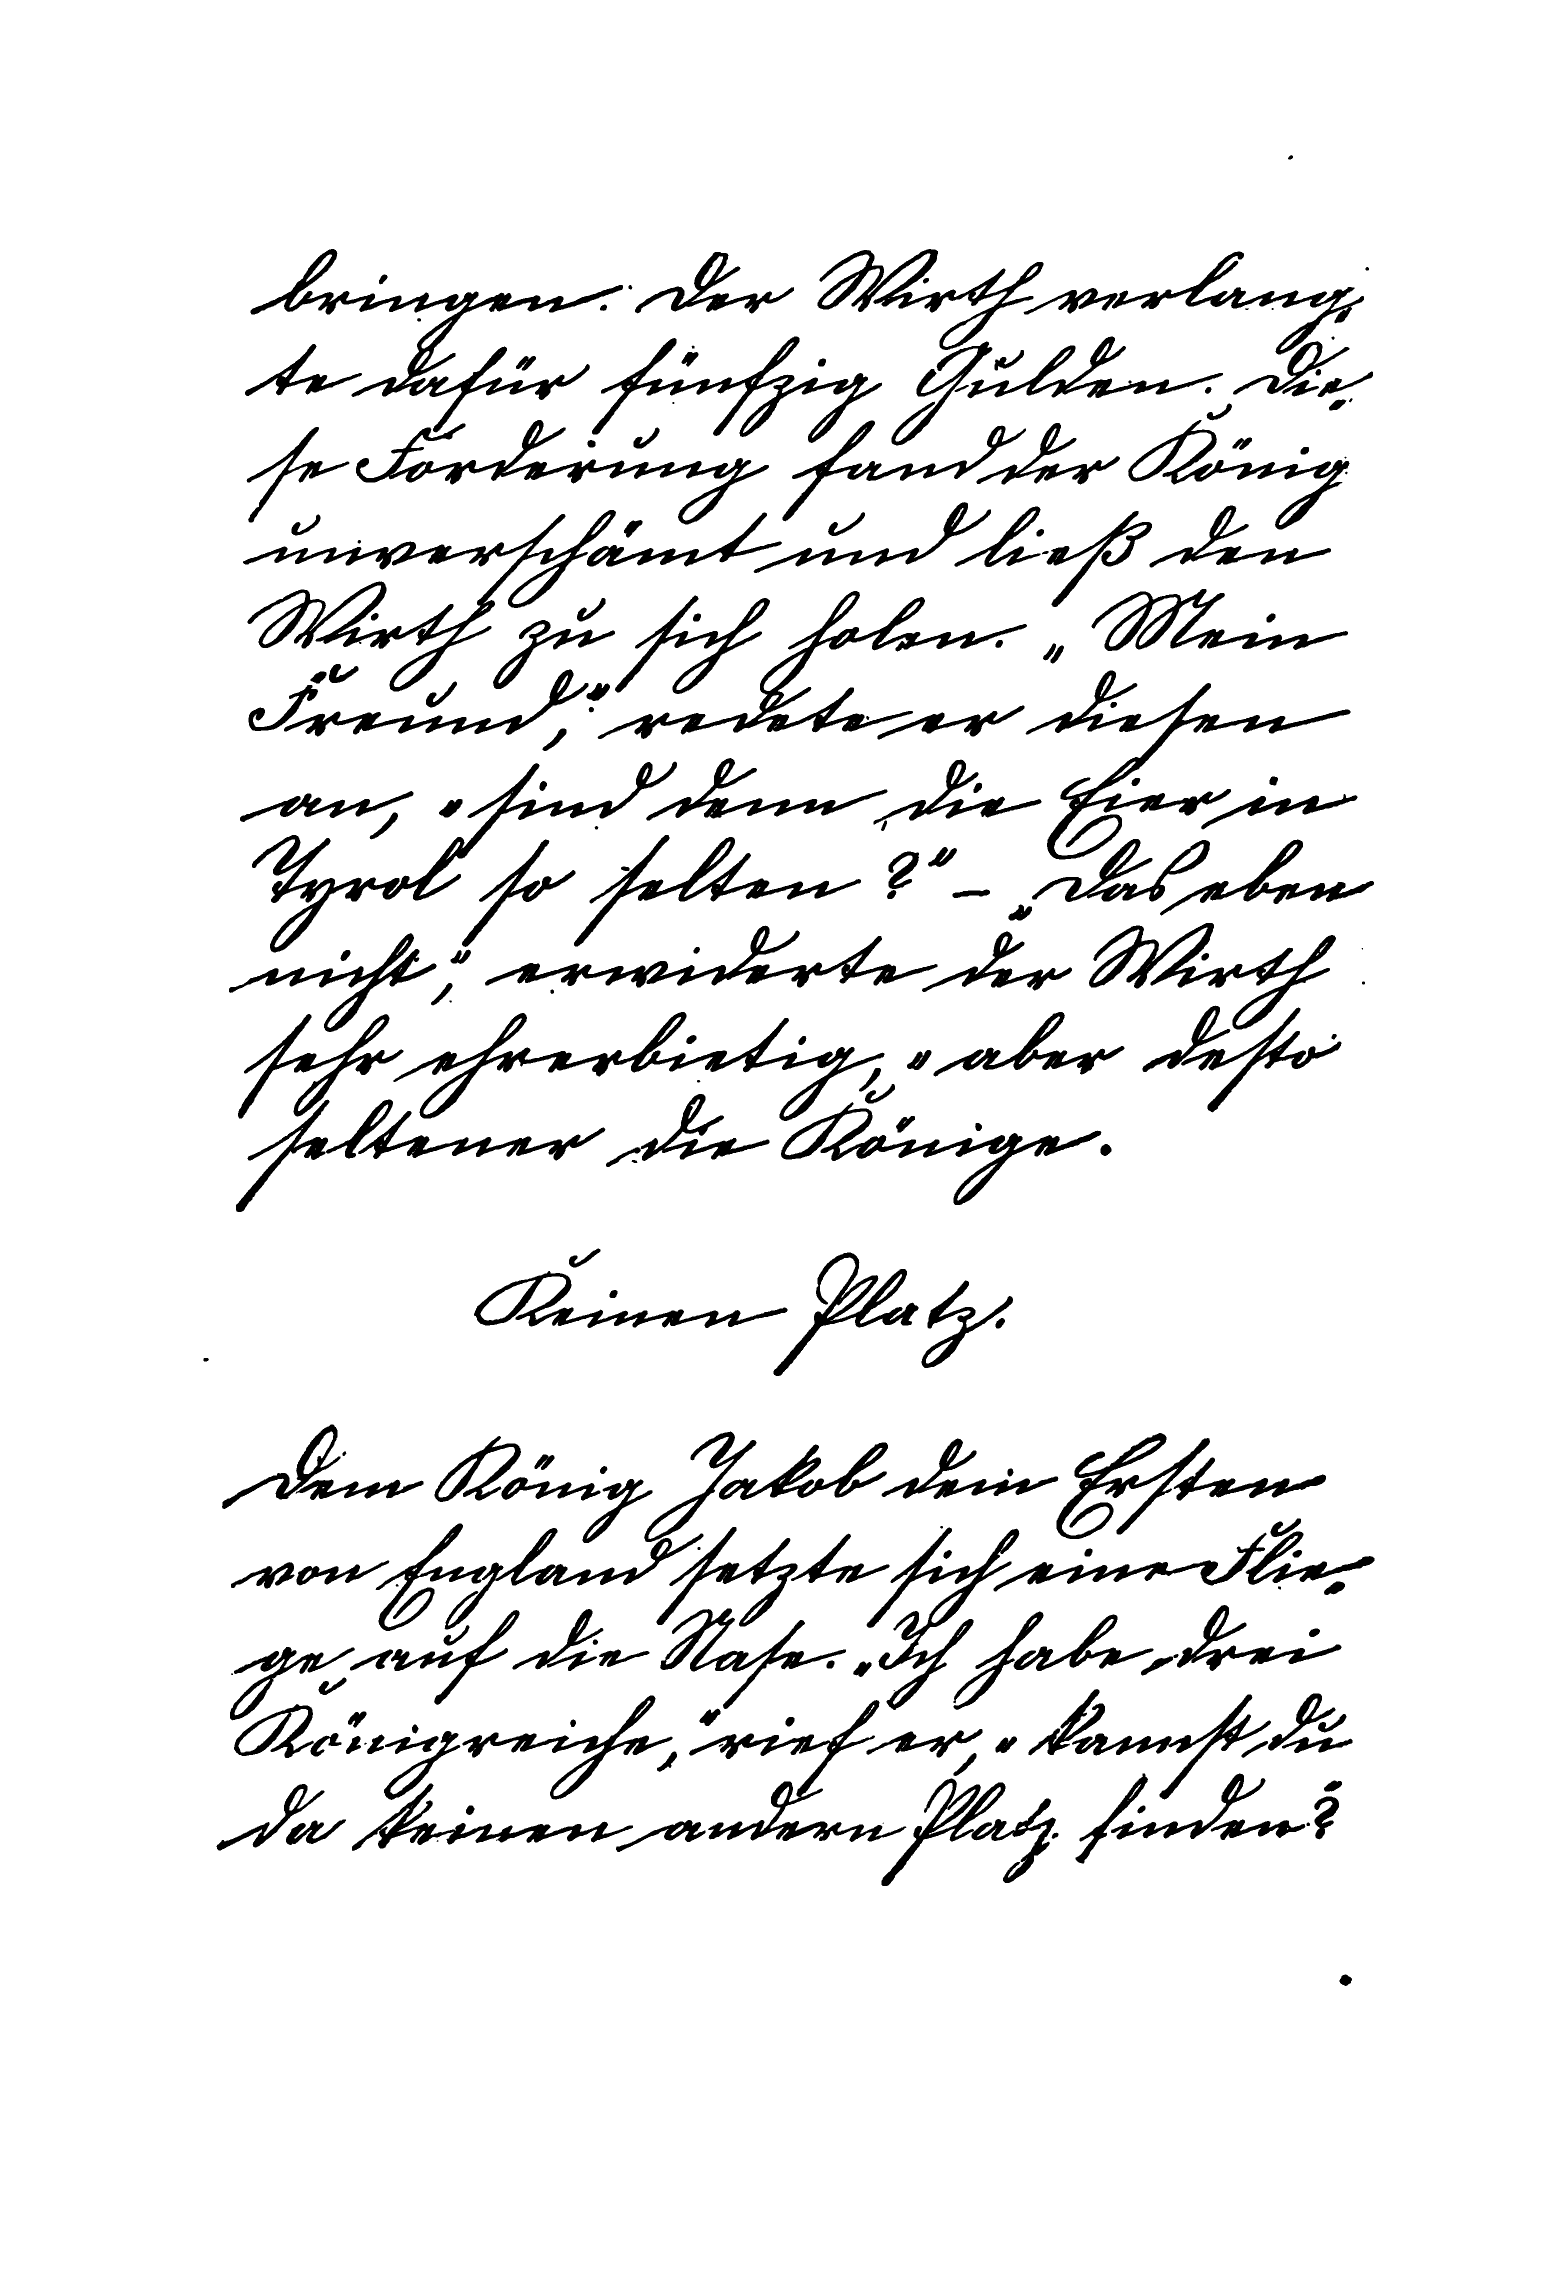 bringen. Der Wirth verlang-
te dafür fünfzig Gulden. Die-
se Forderung fand der König
unverschämt und ließ den
Wirth zu sich holen. „Mein
Freund,“ redete er diesen
an, „sind denn die Eier in
Tyrol so selten?“ – „Das eben
nicht,“ erwiderte der Wirth
sehr ehrerbietig, „aber desto
seltener die Könige.
Keinen Platz.
Dem König Jakob dem Ersten
von England setzte sich eine Flie-
ge auf die Nase. „Ich habe drei
Königreiche,“ rief er, „kannst du
da keinen andern Platz finden?“